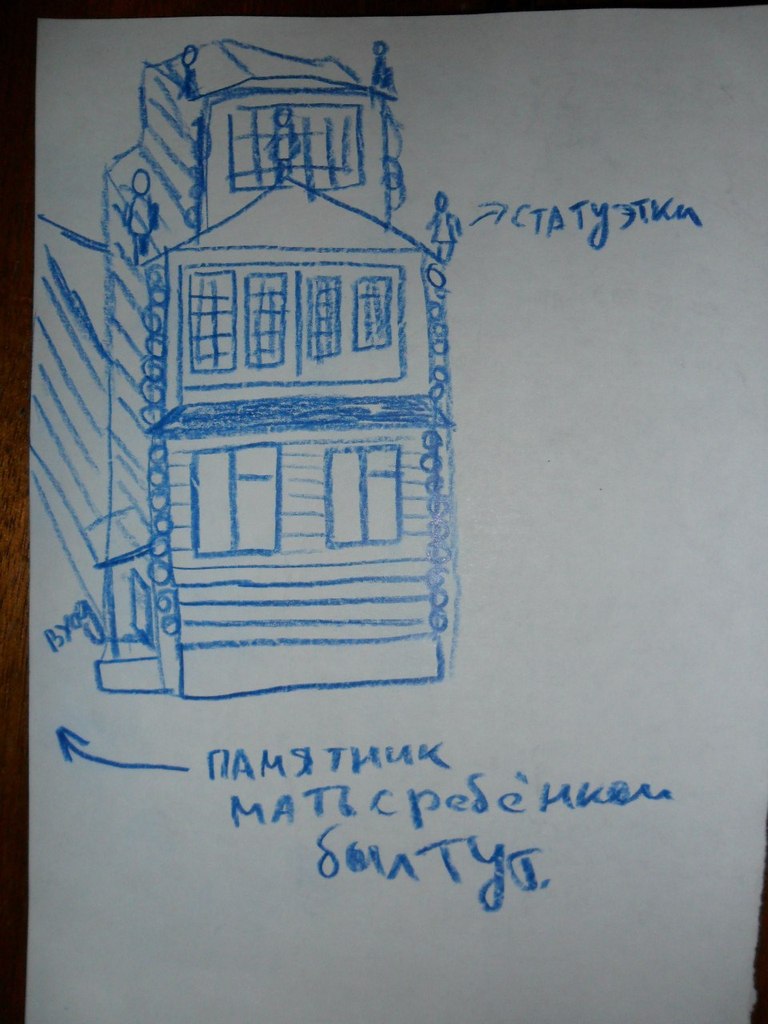 СТАТУЭТКИ
вход
ПАМЯТНИК
МАТЬ с ребёнком
был ТУТ.